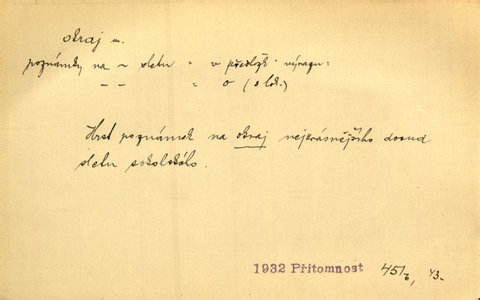 okraj m.
poznámky na ~ sletu = v předlož. výrazu:
— — = o (s lok.)
Hrst poznámek na okraj nejkrásnějšího dosud
sletu sokolského.
1932 Přítomnost 45/7, 43.